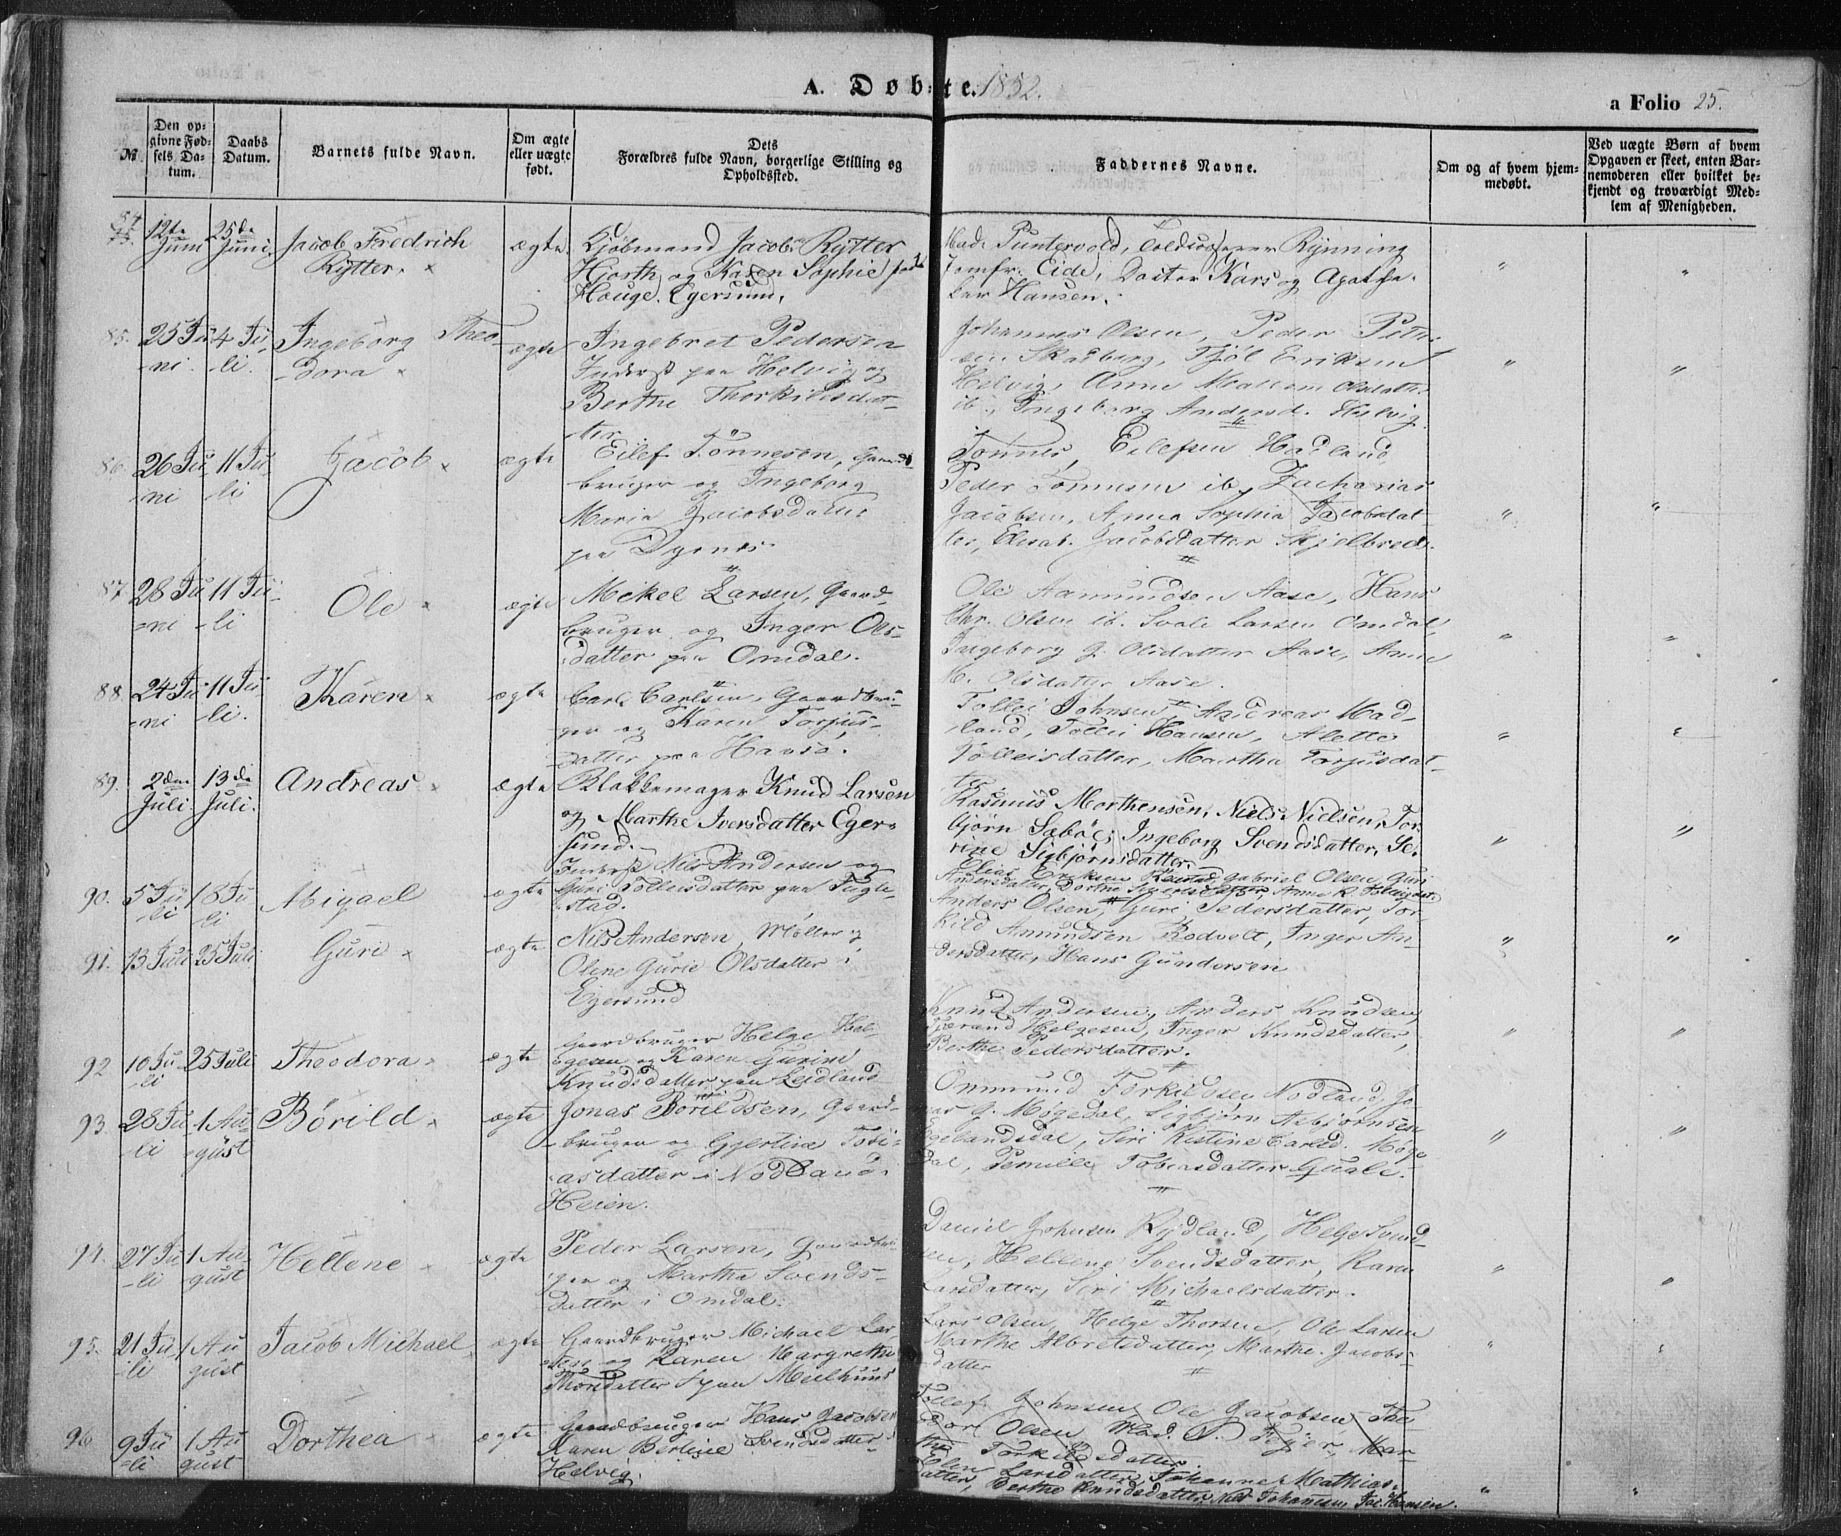 A. Døbte. 1852.
a Folio 25.
№
Den opgivne Fødsels Datum.
Daabs Datum.
Barnets fulde Navn.
Om ægte eller uægte født.
Dets Forældres fulde Navn, borgerlige Stilling og Opholdssted.
Faddernes Navne.
Om og af hvem hjemmedøbt.
Ved uægte Børn af hvem Opgaven er skeet, enten Barnemoderen eller hvilket bekjendt og troværdigt Medlem af Menigheden.
84
12te Juni
25de Juni
Jacob Fredrich
Rytter.
ægte
Kjøbmand Jacob Rytter
Hjorth og Karen Sophie født
Houge. Egersund.
Mad. Puntervold, Toldsvoger Rynning
Jomfr. Eide, Doctor Kars og Apothe-
ker Hansen.
85.
25 Ju-
ni.
4 Ju-
li.
Ingeborg Theo-
dora
ægte
Ingebret Pedersen
Inderst paa Helvig og
Berthe Thorkildsdat-
ter.
Johannes Olsen, Peder Peter-
sen Skadberg, Tjøl Eriksen
Helvig, Anne Malene Olsdatter
ib., Ingeborg Andersd. Helvig.
86.
26 Ju-
ni
11 Ju-
li
Jacob
ægte
Eilef Tönnesen, Gaard-
bruger og Ingeborg
Maria Jacobsdatter
paa Dyrnes
Tönnes Eilefsen Hadland
Peder Tönnesen ib. Zacharias
Jacobsen, Anna Sophia Jacobsdat-
ter, Elisab. Jacobsdatter Skjelbred.
87
28 Ju-
ni
11 Ju-
li
Ole
ægte
Mekel Larsen, Gaard-
bruger og Inger Ols-
datter paa Omdal.
Ole Aamundsen Aase, Hans
Chr. Olsen ib. Svale Larsen Omdal,
Ingeborg G. Olsdatter Aase, Anne
M. Olsdatter Aase.
88
24 Ju-
ni
11 Ju-
li.
Karen
ægte
Carl Carlsen, Gaardbru-
ger og Karen Torjus-
datter paa Havsø.
Tollei Johnsen, Andreas Mad-
land, Tollei Hansen, Alette
Tolleisdatter, Martha Torjusdat-
ter
89.
2den
Juli.
13de
Juli.
Andreas
ægte
Blokkemager Knud Larsen
og Marthe Iversdatter Eger-
sund.
Rasmus Morthensen, Niels Nielsen, Tor-
bjørn Sæbö, Ingeborg Svendsdatter, Se-
rine Sigbjørnsdatter.
90.
5 Ju-
li
18 Ju-
li
Abigael
ægte
Inderst Nils Andersen og
Guri Tolleisdatter paa Fugle-
stad.
Elias Eriksen, Gabriel Olsen, Guri
Andersdatter, Dorthe
91.
13 Juli
25 Juli
Guri
ægte
Nils Andersen, Møller og
Olene Gurie Olsdatter i
Egersund
Anders Olsen, Guri Pedersdatter, Tor-
kild Amundsen Rodvelt, Inger An-
dersdatter, Hans Gundersen
92
10 Ju-
li
25 Juli
Theodora
ægte
Gaardbruger Helge Hel-
gesen og Karen Gurine
Knudsdatter paa Leidland
Knud Andersen, Anders Knudsen
Tørand Helgesen, Inger Knudsdatter,
Berthe Pedersdatter.
93.
28 Ju-
li
1 Au-
gust
Börild
ægte
Jonas Börildsen, Gaard-
bruger og Gjertine Tobi-
asdatter i Nodland
Heien.
Ommund Torkildsen Nodland, Jo-
nas G. Møgedal, Sigbjørn Asbjørnsen
Egelandsdal, Siri Kistine Carlsd. Møge-
dal, Pernille Tobiasdatter Guale.
94.
27 Ju-
li
1 Au-
gust
Hellene
ægte
Peder Larsen, Gaardbru-
ger og Martha Svends-
datter i Omdal.
Daniel Johnsen Rydland, Helje Svend-
sen, Hellene Svendsdatter, Karen
Larsdatter, Siri Michaelsdatter.
95.
21 Ju-
li
1 Au-
gust
Jacob Michael
ægte
Gaardbruger Michael Lar-
sen og Karen Margrethe
Thorsdatter paa Meelhuus
Lars Olsen, Helge Thorsen, Ole Larsen
Marthe Albretsdatter, Marthe Jacobs-
datter
96
9 Ju-
li
1 Au-
gust
Dorthea
ægte
Gaardbruger Hans Jacobsen
Karen Berline Svendsdatter
Helvig.
Tollef Johnsen, Ole Jacobsen, Theo-
dor Olsen, Mad. P. Fejer, Mar-
the Torkildsdatter
Elen Larsdatter, Johanne Mathias-
datter, Berthe Knudsdatter, Nils Johannesen, Jac. Hansen.